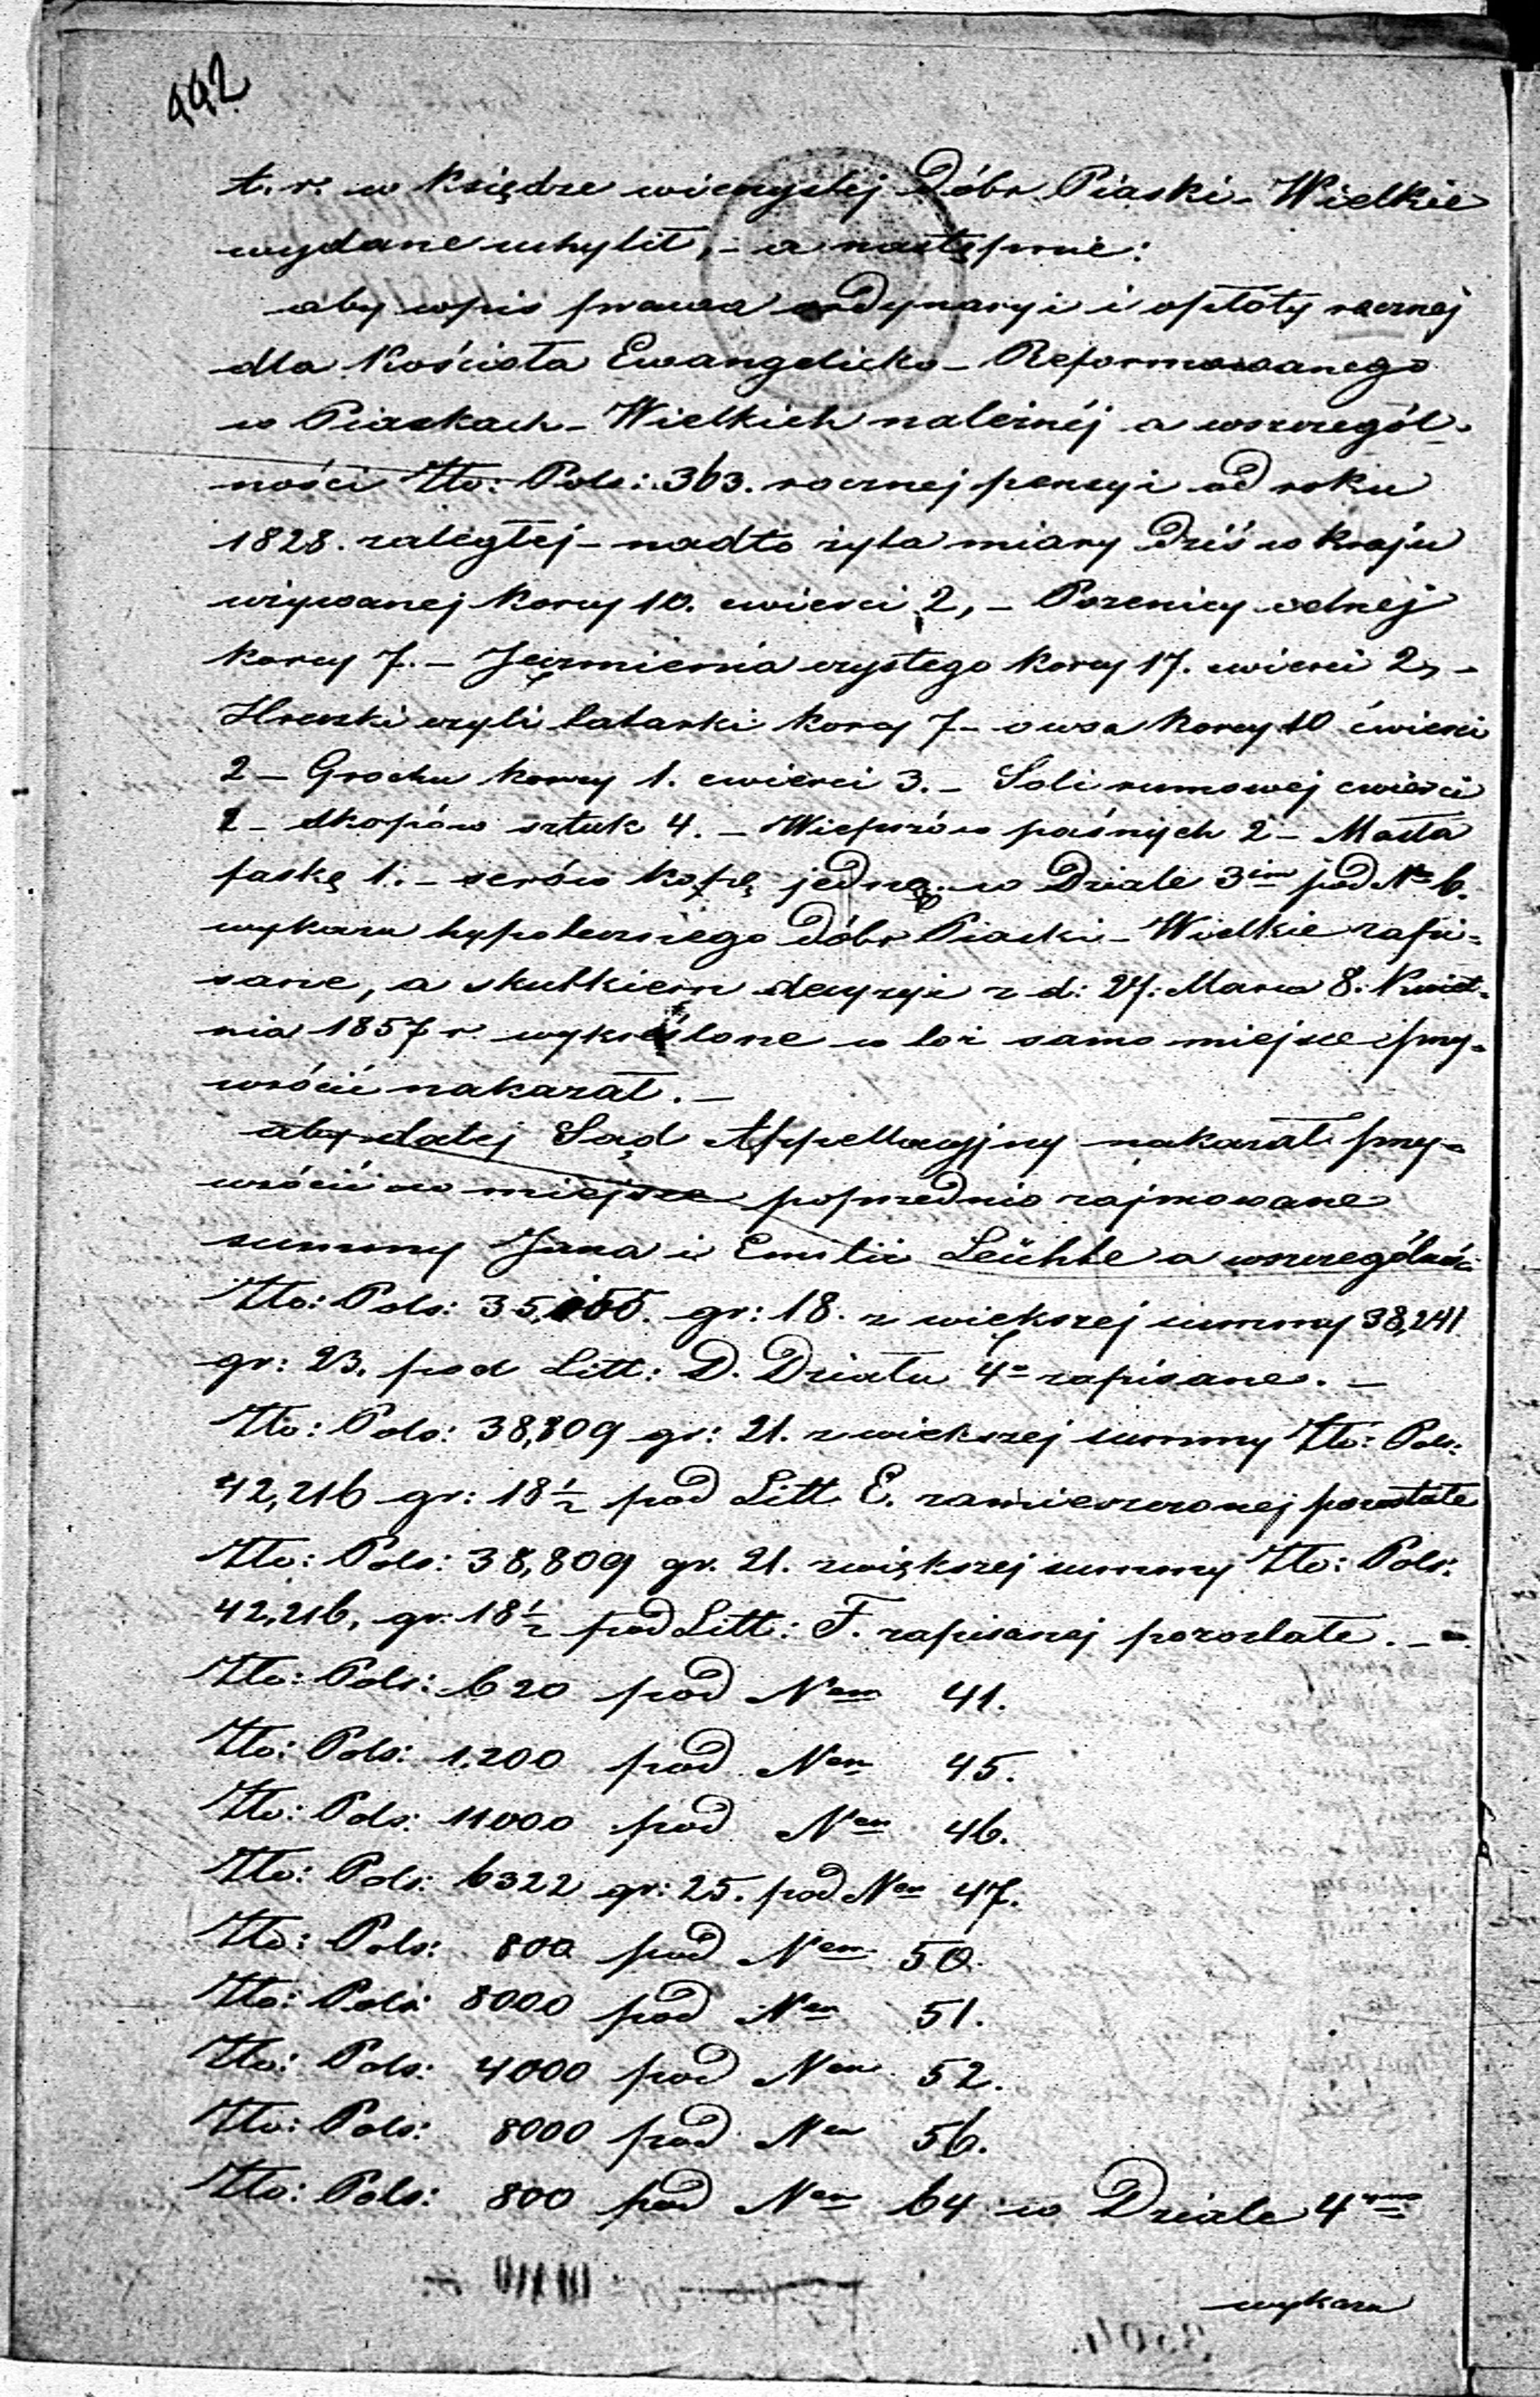 442
t. r. w Księdze wieczystej Dóbr Piaski-Wielkie
wydane uchylił, – a następnie:
aby wpis prawa ordynaryi i opłaty rocznej
dla Kościoła Ewangelicko-Reformowanego
w Piaskach-Wielkich należnéj a wszczegól-
ności Złp: Pols: 363. rocznej pensyi od roku
1828. zaległej – nadto żyta miary dziś w kraju
używanej korcy 10. cwierci 2, – Pszenicy celnej
korcy 7. – Jęczmienia czystego korcy 17. cwierci 2, –
Hreczki czyli tatarki korcy 7 – owsa korcy 10 ćwierci
2 – Grochu korcy 1. cwierci 3. – Soli rumowej cwierci
2 – skopów sztuk 4. – Wieprzów paśnych 2 – Masła
faskę 1. – serów kopę jedną w Dziale 3im pod No 6.
wykazu hypotecznego Dóbr Piaski-Wielkie zapi-
sane, a skutkiem decyzyi z d: 27. Marca 8. Kwiet-
nia 1857 r. wykreślone w toż samo miejsce przy-
wrócić nakazał. –
aby dalej Sąd Appellacyjny nakazał przy-
wrócić w miejsce poprzednio zajmowane
summy Jana i Emilii Leüchte a wszczególności
Zło: Pols: 35, gr: 18. z większej summy 38,241
gr: 23. pod Litt: D. Działu 4o zapisane. –
Zło: Pols: 38,809 gr: 21. z wiekszej summy Zło: Pols:
42,216 gr: 18 1/2 pod Litt E. zamieszczonej pozostałe
Zło: Pols: 38,809 gr. 21. z większej summy Zło: Pols:
42,216, gr: 18 1/2 pod Litt: F. zapisanej pozostałe. –
Zło: Pols: 620 pod Nem 41.
Zło: Pols: 1.200 pod Nem 45.
Zło: Pols: 11000 pod Nem 46.
Zło: Pols: 6322 gr: 25. pod Nem 47.
Zło: Pols: 800 pod Nem 50.
Zło: Pols: 8000 pod Nem 51.
Zło: Pols: 4000 pod Nem 52.
Zło: Pols: 8000 pod Nem 56.
Zło: Pols: 800 pod Nem 64 w Dziale 4ym
wykazu